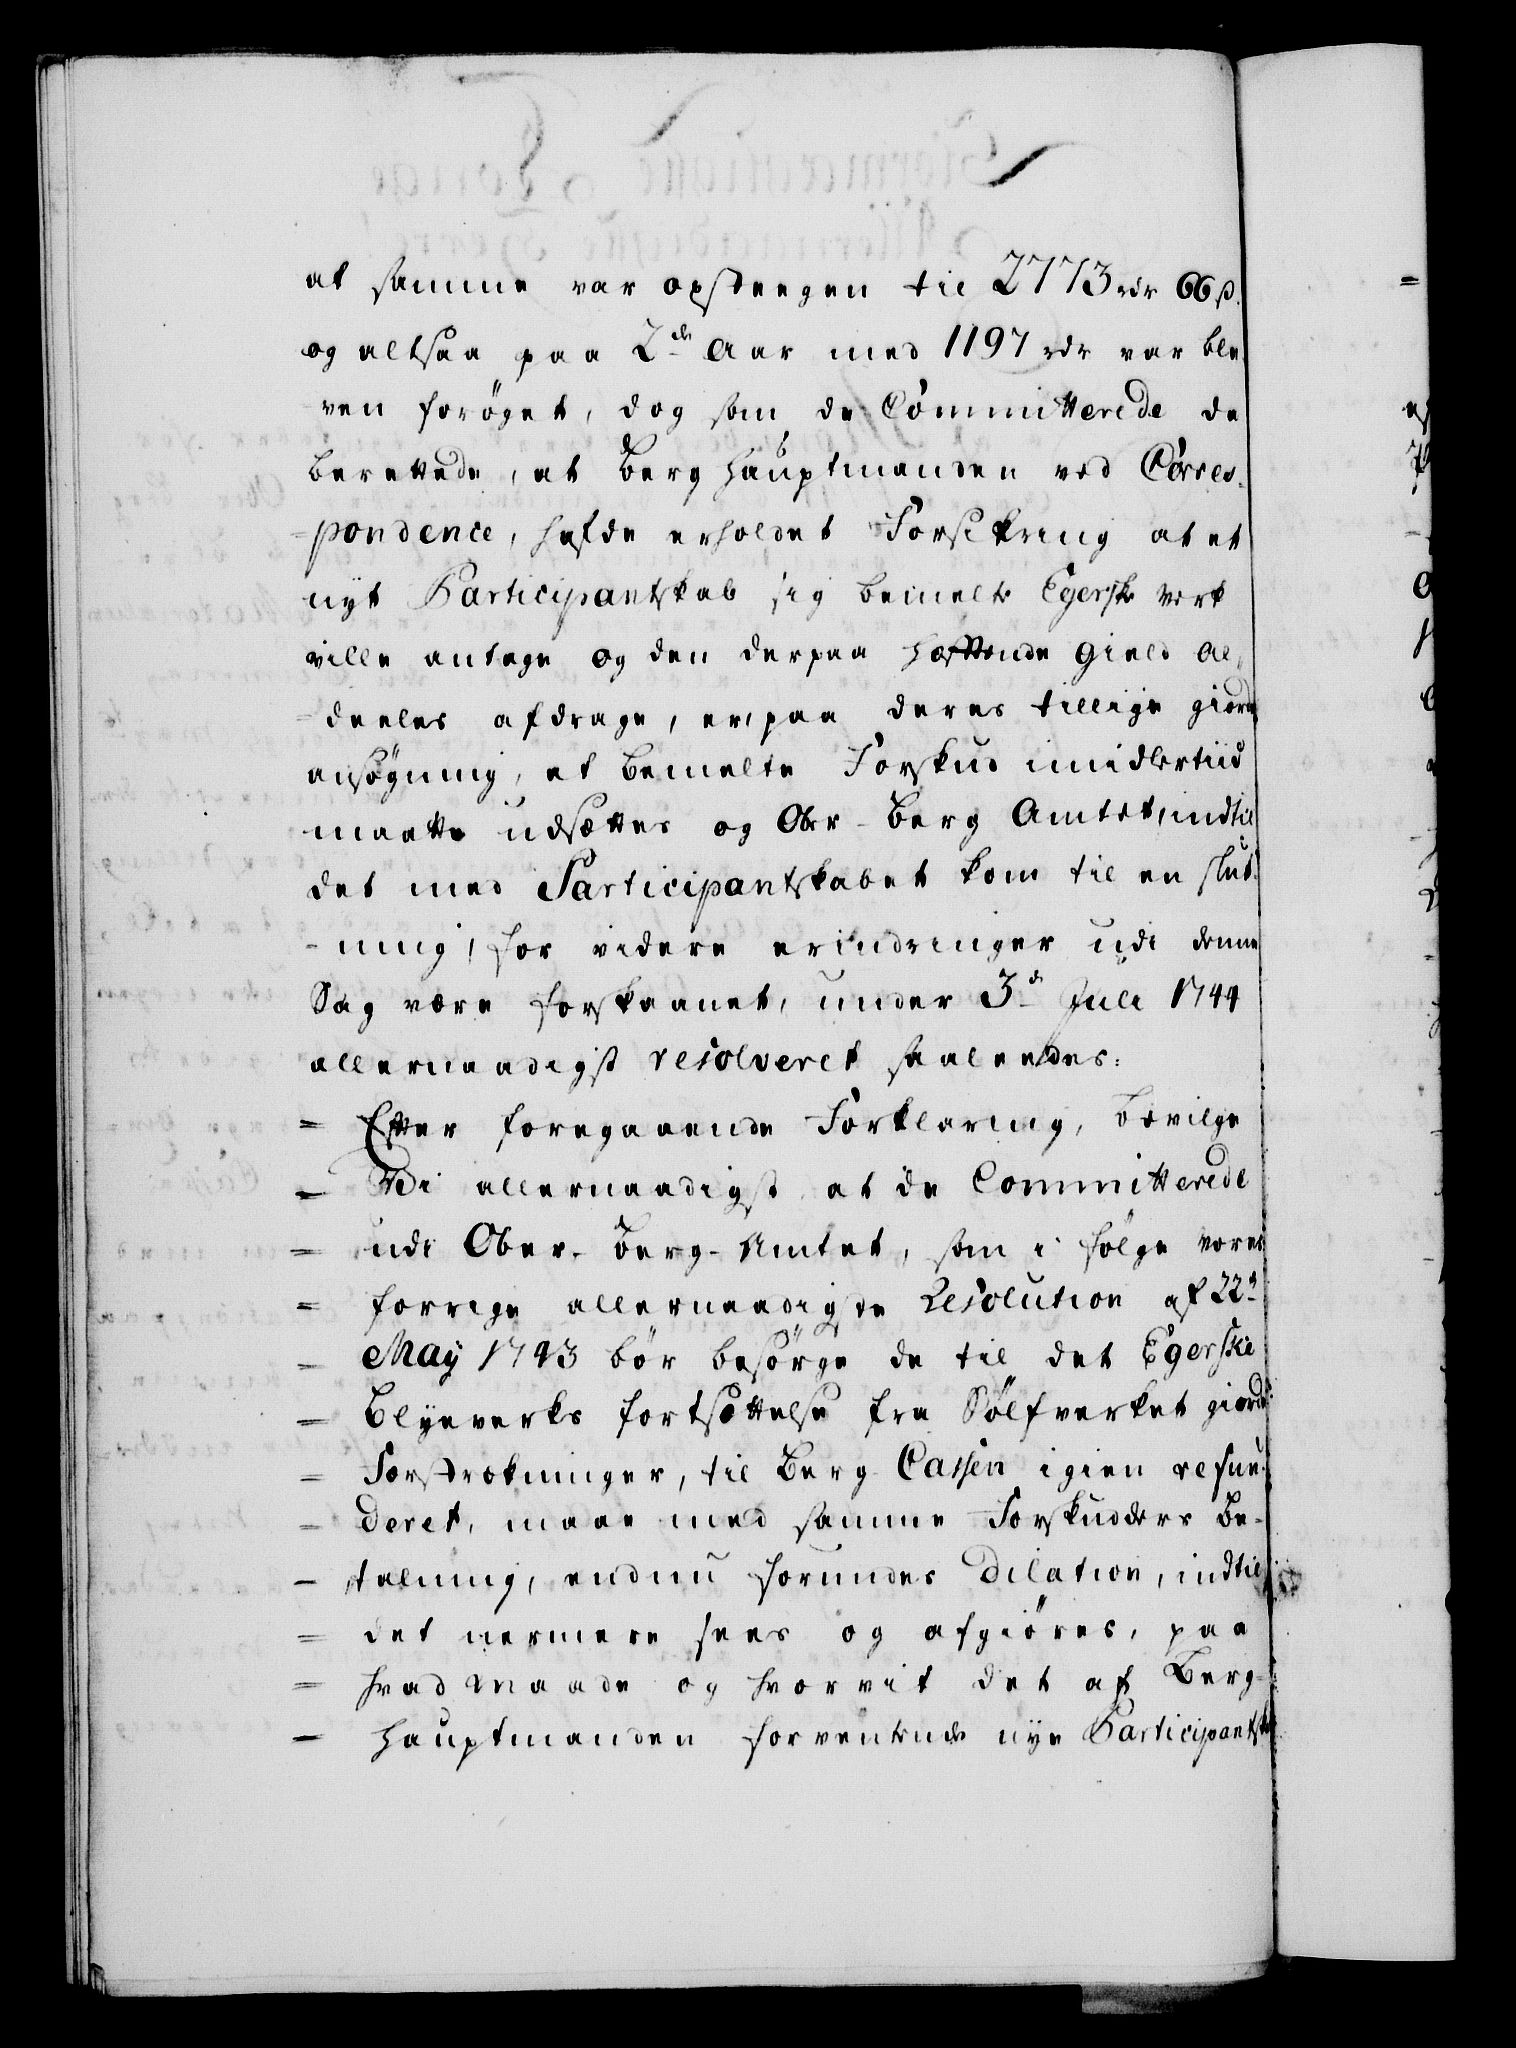 at samme var opsteegen til 2773 rdr 66 ß.
og altsaa paa 2de Aar med 1197 rdr var ble
ven forøget, dog som de Committerede de
berettede, at Berg Hauptmanden ved Corres-
pondence, hafde erholdet Forsikring at et
nyt Participantskab sig bemelte Egerske Verk
ville antage og den derpaa hæftende Gield al-
deeles afdrage, er, paa deres tillige giorde
ansøgning, at bemelte Forskud imidlertiid
maatte udsættes og Ober-Berg Amtet, indtil
det med Participantskabet kom til en slut-
-ning, for videre erindringer udi denne
Sag være forskaanet, under 3de Juli 1744
allernaadigst resolveret saaleedes:
= Efter foregaaende Forklaring, bevilge
= Vi allernaadigst at de Committerede
= udi Ober-Berg-Amtet, som i følge vores
= forrige allernaadigste Resolution af 22de
= May 1743 bør besørge de til det Egerske
= Blyeverks fortsættelse fra Sølfverket giorde
= Forstrækninger, til Berg Cassen igien refun-
= deret, maae med samme Forskudders Be-
= talning, endnu forundes Dilation, indtil
= det nermere sees og afgiøres, paa
= hvad Maade og hvorvit det af Berg-
= Hauptmanden forventende nye Participantskab